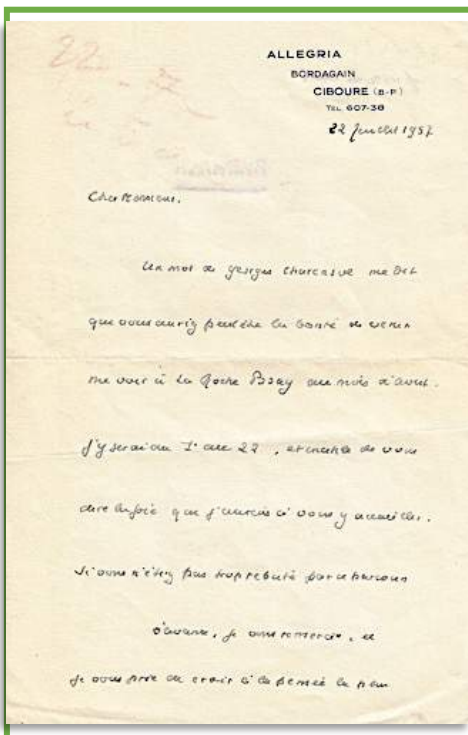 ALLEGRIA
BORDAGAIN
CIBOURE (B-P)
TEL. 607-38
22 juillet 1957
Cher Monsieur,
Un mot de georges me dit
que vous auriez peut être la bonté de venir
me voir à la Roche au mois d'août.
J'y serai du 1er au 22, et inutile de vous
dire la joie que j'aurais à vous y accueillir.
Si vous n'étiez pas trop rebuté par ce parcours
d'avance, je vous remercie, et
je vous prie de croire à la pensée la plus